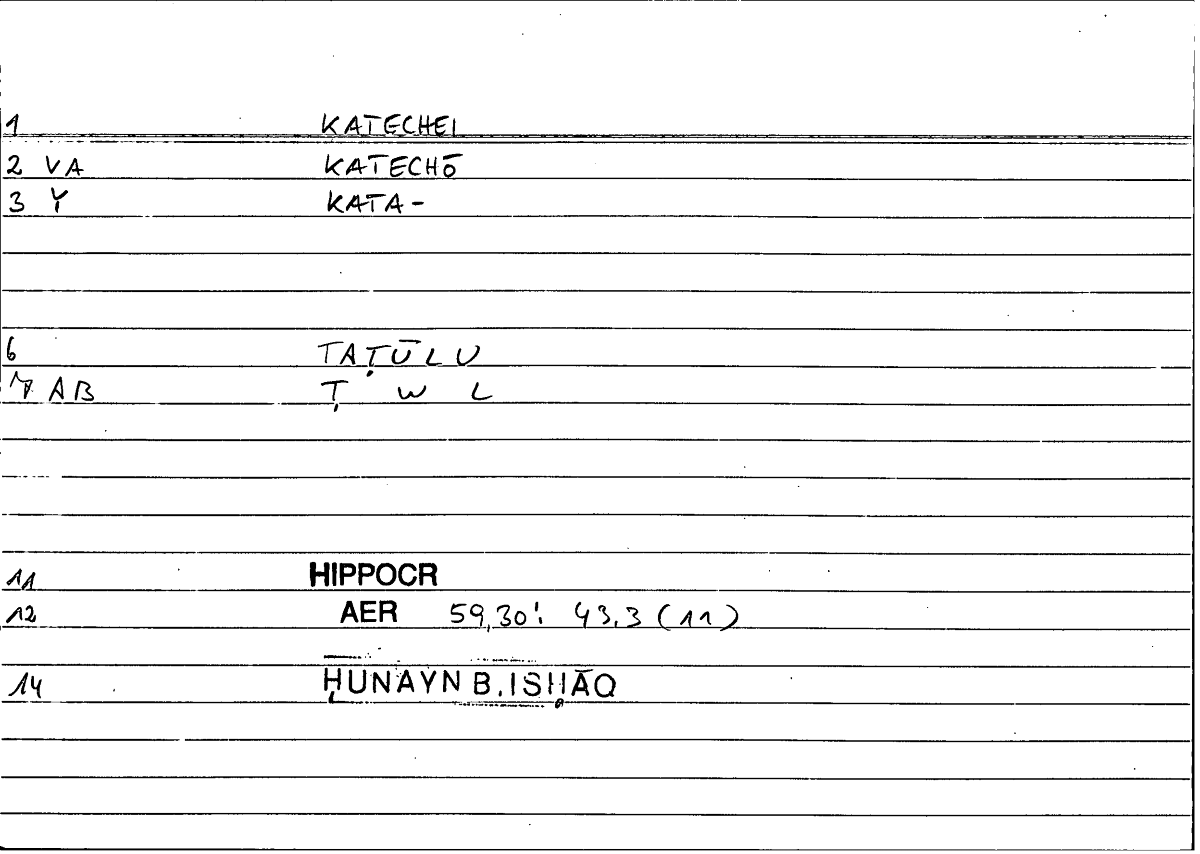 1 KATECHEI
2 VA KATECHŌ
3 Y KATA-
6 TAṬŪLU
7 AB Ṭ W L
11 HIPPOCR
12 AER 59,30: 43.3 (11)
14 ḤUNAYN B. ISḤĀQ